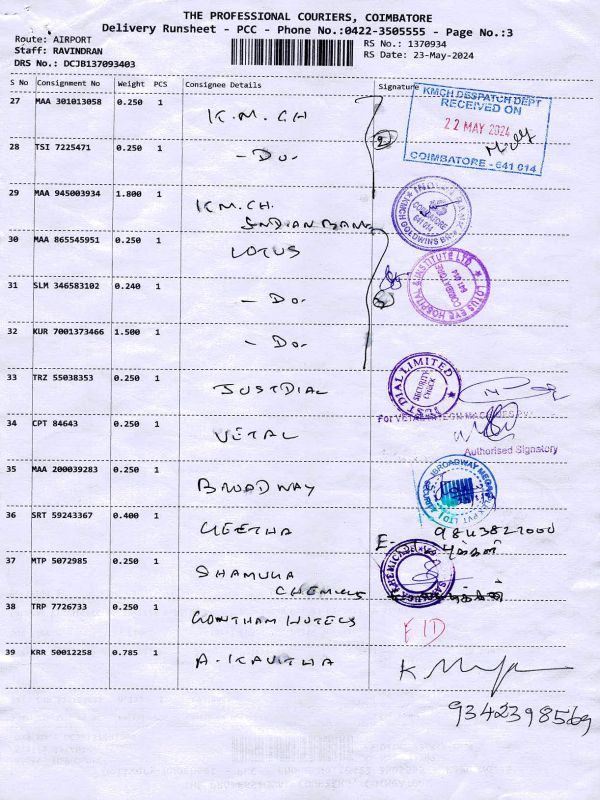 THE PROFESSIONAL COURIERS, COIMBATORE
Delivery Runsheet - PCC - Phone No.:0422-3505555 - Page No.:3
Route: AIRPORT
Staff: RAVINDRAN
DRS No.: DCJB137093403
RS No.: 1370934
RS Date: 23-May-2024
S No Consignment No Weight PCS Consignee Details Signature
27 MAA 301013058 0.250 1 K.M.CH
KMCH DESPATCH DEPT
RECEIVED ON
22 MAY 2024
COIMBATORE - 641 014
28 TSI 7225471 0.250 1 - Do -
2
29 MAA 945003934 1.800 1 KM.CH.
INDIAN BANK
30 MAA 865545951 0.250 1 LOTUS
LOTUS EYE HOSPITAL & INSTITUTE LTD
COIMBATORE
641 014
31 SLM 346583102 0.240 1 - Do -
32 KUR 7001373466 1.500 1 - Do -
33 TRZ 55038353 0.250 1 JUSTDIAL
JUST DIAL LIMITED
SECURITY CHECK
34 CPT 84643 0.250 1 VETAL
Authorised Signatory
35 MAA 200039283 0.250 1 BROADWAY
36 SRT 59243367 0.400 1 GEETHA
9843827000
37 MTP 5072985 0.250 1 SHAMUKA
CHEMICALS
38 TRP 7726733 0.250 1 GOWTHAM HOTELS
39 KRR 50012258 0.785 1 A. KAVITHA
9342398569